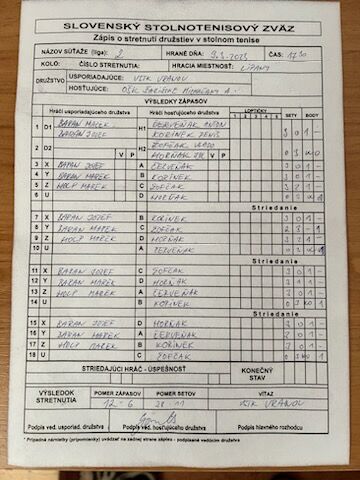 SLOVENSKÝ STOLNOTENISOVÝ ZVÄZ
Zápis o stretnutí družstiev v stolnom tenise
NÁZOV SÚŤAŽE (liga): 2 HRANÉ DŇA: 9.3.2023 ČAS: 17:30
KOLO: ČÍSLO STRETNUTIA: HRACIA MIESTNOSŤ: LIPANY
DRUŽSTVO USPORIADAJÚCE: VSTK VRANOV
HOSŤUJÚCE: OŠK ŠARIŠSKÉ MICHAĽANY A
VÝSLEDKY ZÁPASOV
Hráči usporiadajúceho družstva Hráči hosťujúceho družstva LOPTIČKY SETY BODY
1 2 3 4 5
1 D1 BARAN MAREK H1 ČERVEŇAK ANTON 3 0 1 -
BARAN JOZEF KORÍNEK DENIS
2 D2 H2 ŽOFČAK 0 3 WO
V P HORŇAK V P
3 X BARAN JOZEF A ČERVEŇAK 3 0 1 -
4 Y BARAN MAREK B KORÍNEK 3 0 1 -
5 Z HOLP MAREK C ŽOFČAK 3 2 1 -
6 U D HORŇAK 0 3 WO 1
Striedanie
7 X BARAN JOZEF B KORÍNEK 3 0 1 -
8 Y BARAN MAREK C ŽOFČAK 2 3 - 1
9 Z HOLP MAREK D HORŇAK 3 2 1 -
10 U A ČERVEŇAK 0 3 1
Striedanie
11 X BARAN JOZEF C ŽOFČAK 3 0 1 -
12 Y BARAN MAREK D HORŇAK 3 1 1 -
13 Z HOLP MAREK A ČERVEŇAK 3 0 1 -
14 U B KORÍNEK 0 3 WO 1
Striedanie
15 X BARAN JOZEF D HORŇAK 3 0 1 -
16 Y BARAN MAREK A ČERVEŇAK 3 0 1 -
17 Z HOLP MAREK B KORÍNEK 3 0 1 -
18 U C ŽOFČAK 0 3 WO 1
STRIEDAJÚCI HRÁČ - ÚSPEŠNOSŤ KONEČNÝ STAV
VÝSLEDOK STRETNUTIA POMER ZÁPASOV POMER SETOV VÍŤAZ
12 - 6 VSTK VRANOV
Podpis ved. usporiad. družstva Podpis ved. hosťujúceho družstva Podpis hlavného rozhodcu
* Prípadné námietky (pripomienky) uvádzať na zadnej strane zápisu - podpísané vedúcim družstva